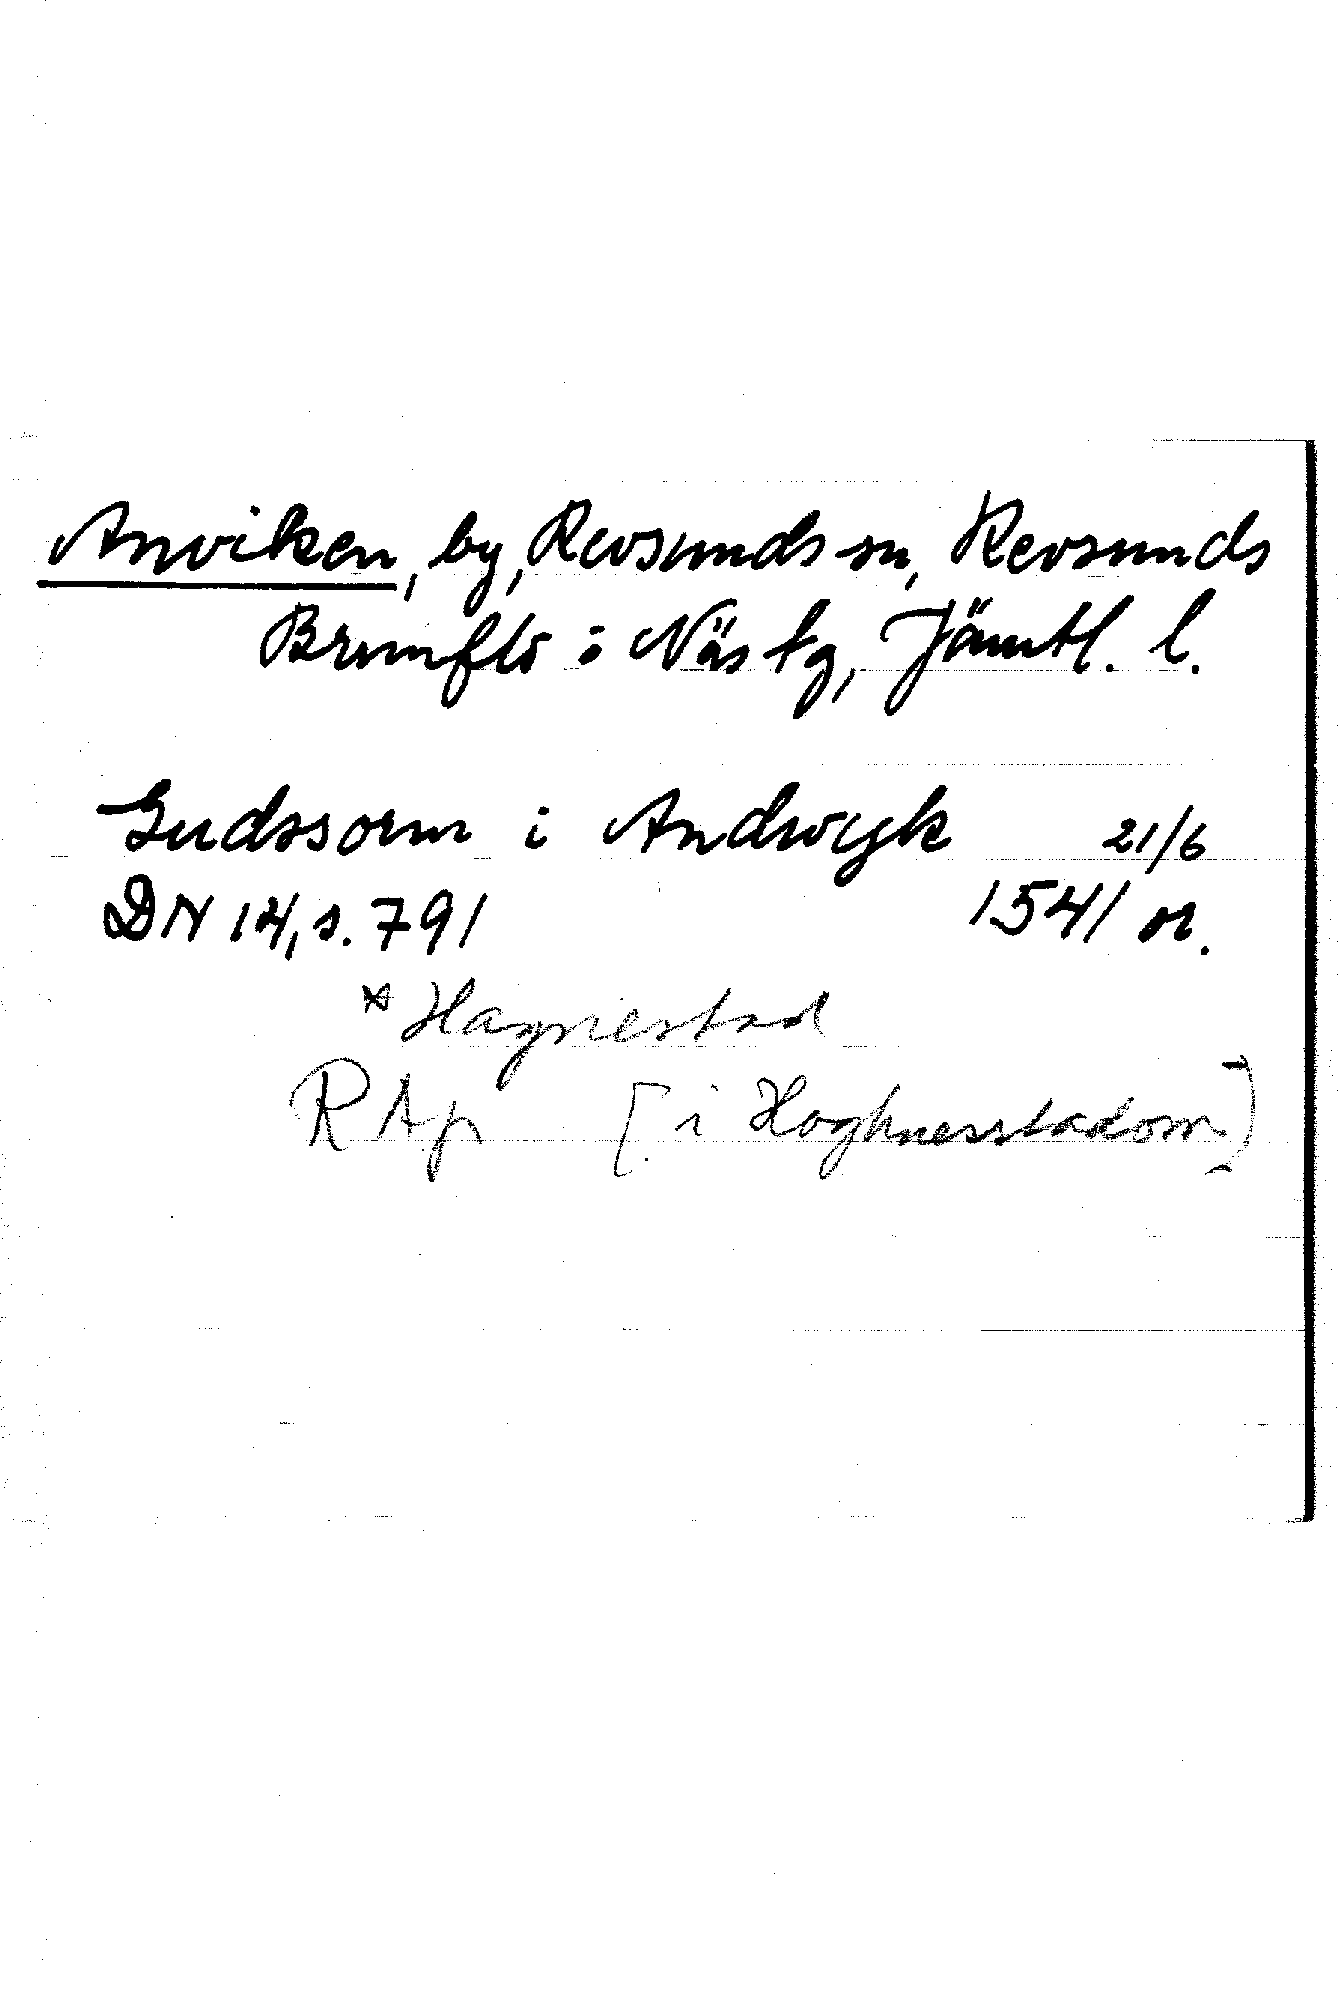 Anviken, by, Revsunds sn, Revsunds
Brunflo o Näs tg, Jämtl. l.
Gudssorm i Andwyk 21/6
DN 14, s. 791 1541 or.
* Hagnestad
RAp [i Hoghnesstadom]